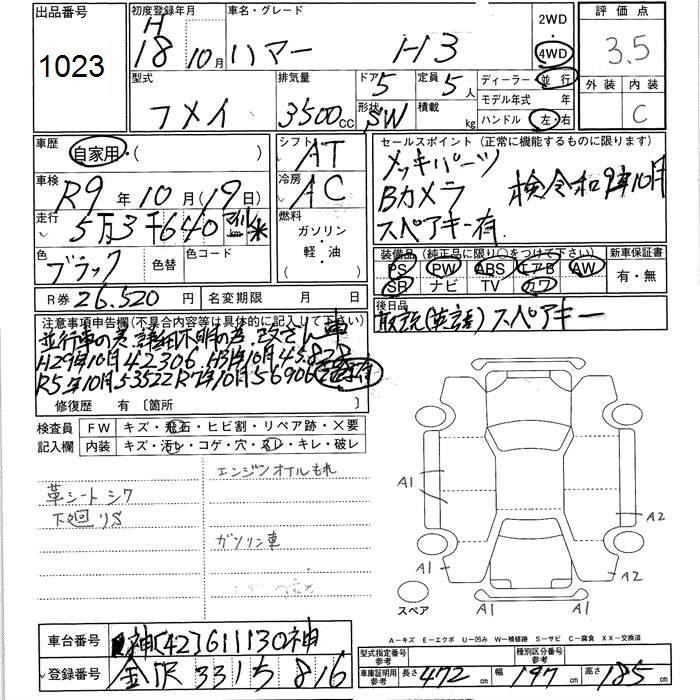 出品番号 1023
初度登録年月 H18年10月
車名・グレード ハマー H3
2WD 4WD
評価点 3.5
外装 内装 C
型式 フメイ
排気量 3500cc
ドア 5 形状 SW
定員 5人 積載 kg
ディーラー・並行
モデル年式 年
ハンドル 左・右
車歴 自家用・( )
シフト AT
車検 R9年10月(19日)
冷房 AC
走行 5万3千640 マイル km
燃料 ガソリン・軽・油
色 ブラック 色替 色コード
R券 26.520円 名変期限 月 日
セールスポイント(正常に機能するものに限ります)
メッキパーツ
Bカメラ 検令和9年10月
スペアキー有
装備品(純正品に限り○をつけて下さい) 新車保証書
PS PW ABS エアB AW 有・無
SR ナビ TV カワ
後日品
取説(英語)スペアキー
注意事項申告欄(不具合内容等は具体的に記入して下さい)
並行車の為、諸元不明の為、改ざん車
H29年10月42306、H31年10月45828
R5年10月53522 R7年10月56906
修復歴 有〔箇所 〕
検査員記入欄 FW キズ・飛石・ヒビ割・リペア跡・×要
内装 キズ・汚レ・コゲ・穴・スレ・キレ・破レ
エンジンオイルもれ
革シートシワ
下廻りS
ガソリン車
A1
A1
A2
A1
A2
スペア
A=キズ E=エクボ U=凹み W=補修跡 S=サビ C=腐食 XX=交換済
車台番号 神[42]611130神
登録番号 金沢 331 ち 816
型式指定番号 参考 種別区分番号 参考
車庫証明用 参考 長さ 472cm 幅 197cm 高さ 185cm